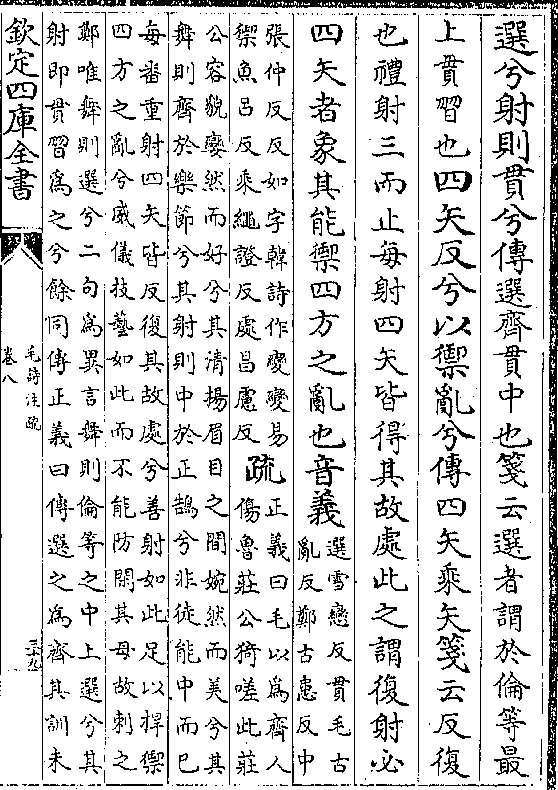 選兮射則貫兮傳選齊貫中也箋云選者謂於倫等最
上貫習也四矢反兮以禦亂兮傳四矢乘矢箋云反復
也禮射三而止每射四矢皆得其故處此之謂復射必
四矢者象其能禦四方之亂也音義
選雪戀反貫毛古
亂反鄭古患反中
張仲反反如字韓詩作變變易
禦魚呂反乘繩證反處昌慮反
疏
正義曰毛以為齊人
傷魯莊公猗嗟此莊
公容貌孌然而好兮其清揚眉目之間婉然而美兮其
舞則齊於樂節兮其射則中於正鵠兮非徒能中而已
每番重射四矢皆反復其故處兮善射如此足以捍禦
四方之亂兮威儀技藝如此而不能防閑其母故刺之
鄭唯舞則選兮二句為異言舞則倫等之中上選兮其
射即貫習為之兮餘同傳正義曰傳選之為齊其訓未
欽定四庫全書
毛詩注疏
卷八
三十九